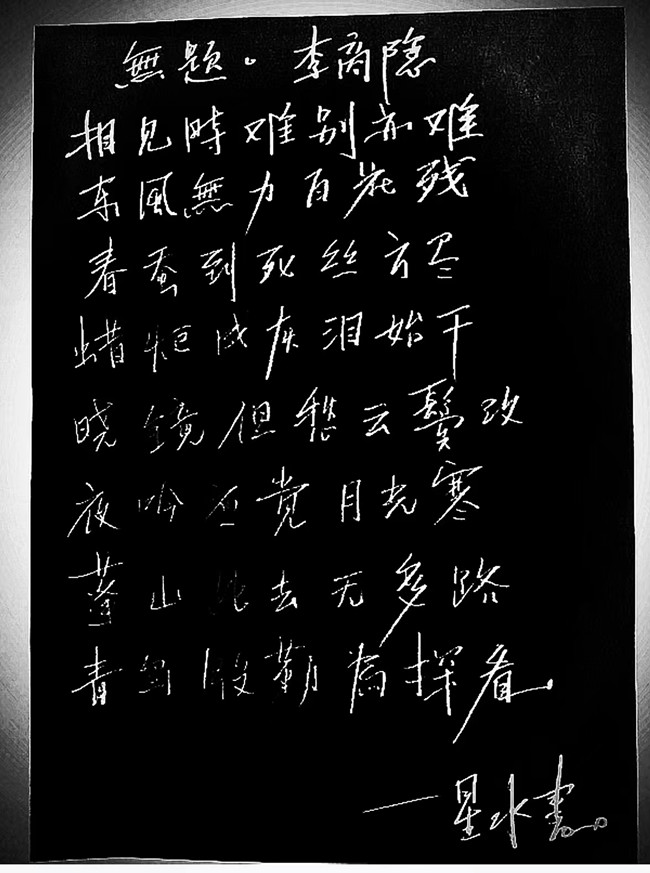 無题。李商隐
相见時难别亦难
东風無力百花残
春蚕到死丝方尽
蜡炬成灰泪始干
晓鏡但愁云鬓改
夜吟应觉月光寒
蓬山此去无多路
青鸟殷勤為探看.
—星水書。